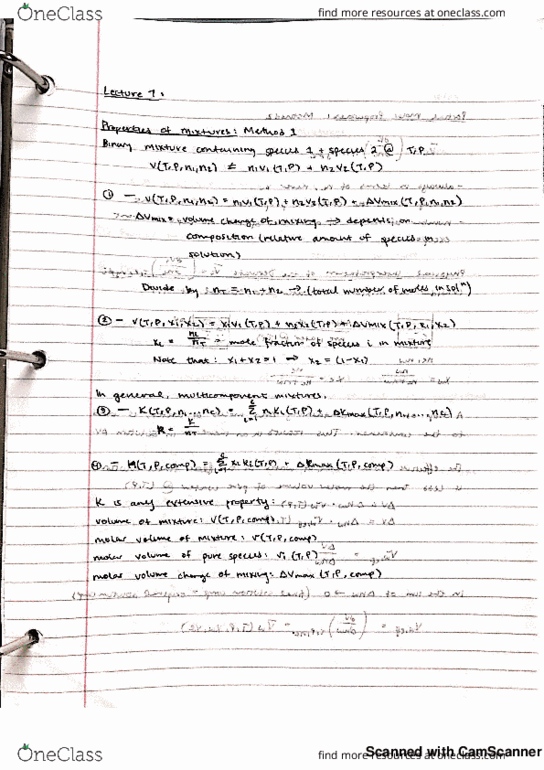 OneClass
find more resources at oneclass.com
Lecture 7:
Properties of mixtures: Method 1
Binary mixture containing species 1 + species 2 @ T, P.
V(T,P,n1,n2) ≠ n1v1(T,P) + n2v2(T,P)
① – V(T,P,n1,n2) = n1v1(T,P) + n2v2(T,P) + ΔVmix(T,P,n1,n2)
ΔVmix = volume change of mixing → depends on
composition (relative amount of species in
solution)
Divide by: nT = n1 + n2 → (total number of moles in solⁿ)
② – v(T,P,x1,x2) = x1v1(T,P) + x2v2(T,P) + ΔVmix(T,P,x1,x2)
xi = ni/nT = mole fraction of species i in mixture
Note that: x1+x2=1 ⇒ x2 = (1-x1)
In general, multicomponent mixtures.
③ – K(T,P,n1,...,nc) = Σ niki(T,P) + ΔKmax(T,P,n1,...,nc)
k = K/nT
④ – (T,P,comp) = Σ xiki(T,P) + Δkmax(T,P,comp)
K is any extensive property:
volume of mixture: V(T,P,comp)
molar volume of mixture: v(T,P,comp)
molar volume of pure species: vi(T,P)
molar volume change of mixing: ΔVmax(T,P,comp)
OneClass
find more resources at oneclass.com
Scanned with CamScanner